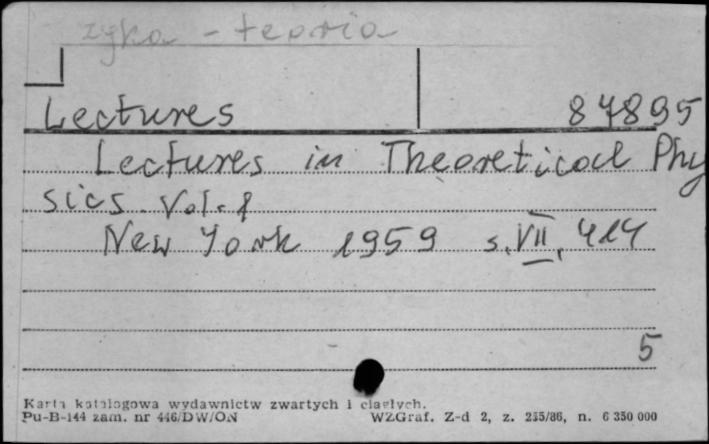 zyka - teoria
Lectures 87895
Lectures in Theoretical Phy
sics. Vol. 1
New York 1959 s. VII, 414
5
Karta katalogowa wydawnictw zwartych i ciągłych.
Pu-B-144 zam. nr 446/DW/ON WZGraf. Z-d 2, z. 255/86, n. 6 350 000